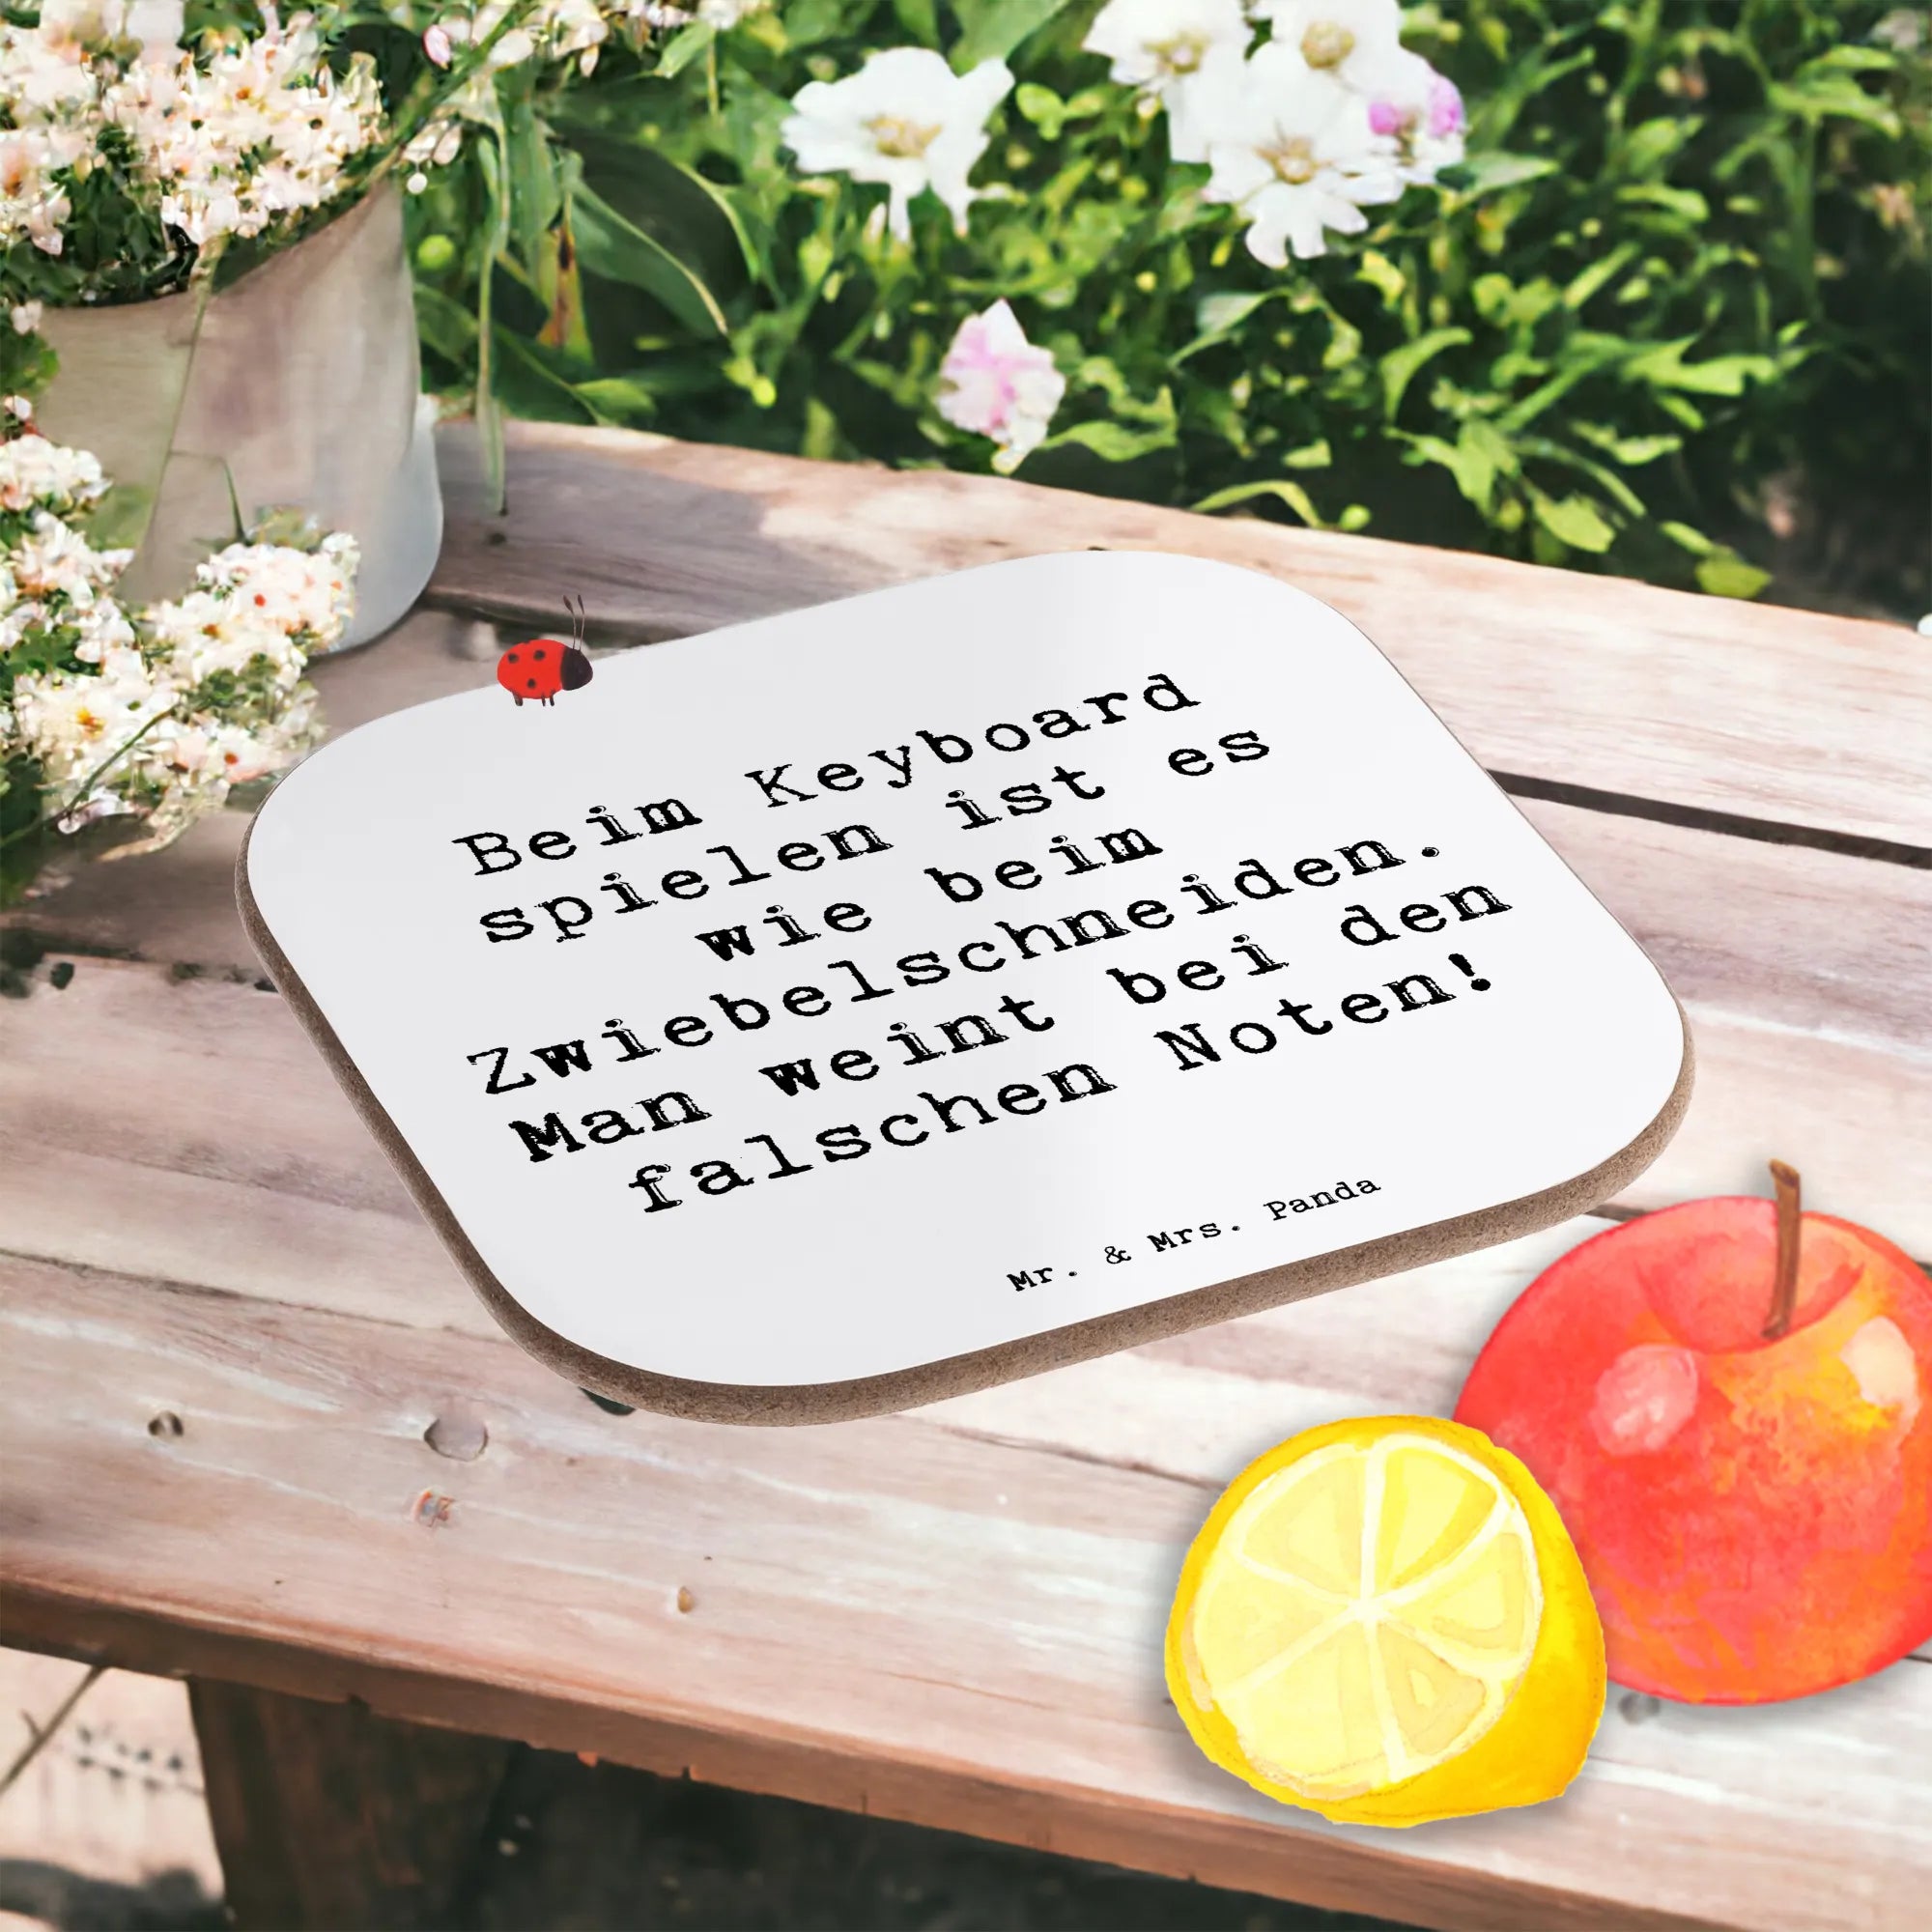 Beim Keyboard
spielen ist es
wie beim
Zwiebelschneiden.
Man weint bei den
falschen Noten!
Mr. & Mrs. Panda